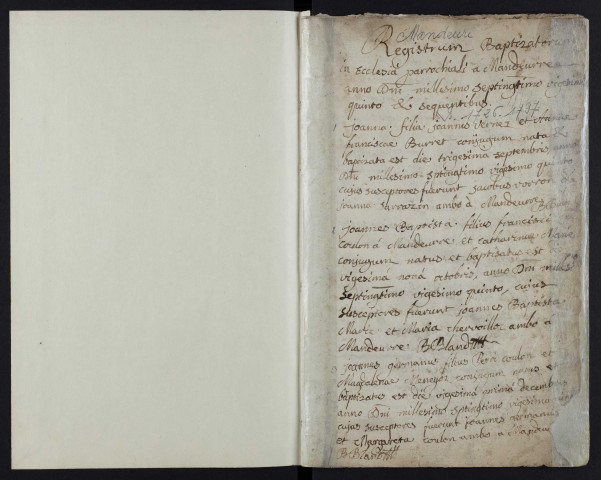 Mandeure
Registrum Baptizatorum
in Ecclesia parrochiali a Mandeurre
anno Dni millesimo septingtimo vigesimo
quinto & sequentibus.
1726-1797
joanna filia joannis Vernez et
franciscae Burret conjugum nata &
baptizata est die trigesima septembris anno
Dni millesimo sptingtimo vigesimo quinto
cujus susceptores fuerunt jacobus
joanna sarrazin ambo à Mandeurre
joannes Baptista filius francisci
coulon à Mandeurre et catharinae Marie
conjugum natus et baptisatus est
vigesimâ nonâ octobris, anno Dni mille
septingtimo vigesimo quinto, cujus
susceptores fuerunt joannes Baptista
Marie et Maria chervoillo ambo à
Mandeurre. Bland
joannes germanus filius Petri coulon et
Magdalenae conjugum natus et
baptizatus est die vigesimâ primâ decembris
anno Dni millesimo sptingtimo vigesimo
cujus susceptores fuerunt joannes
et Margareta coulon ambo a